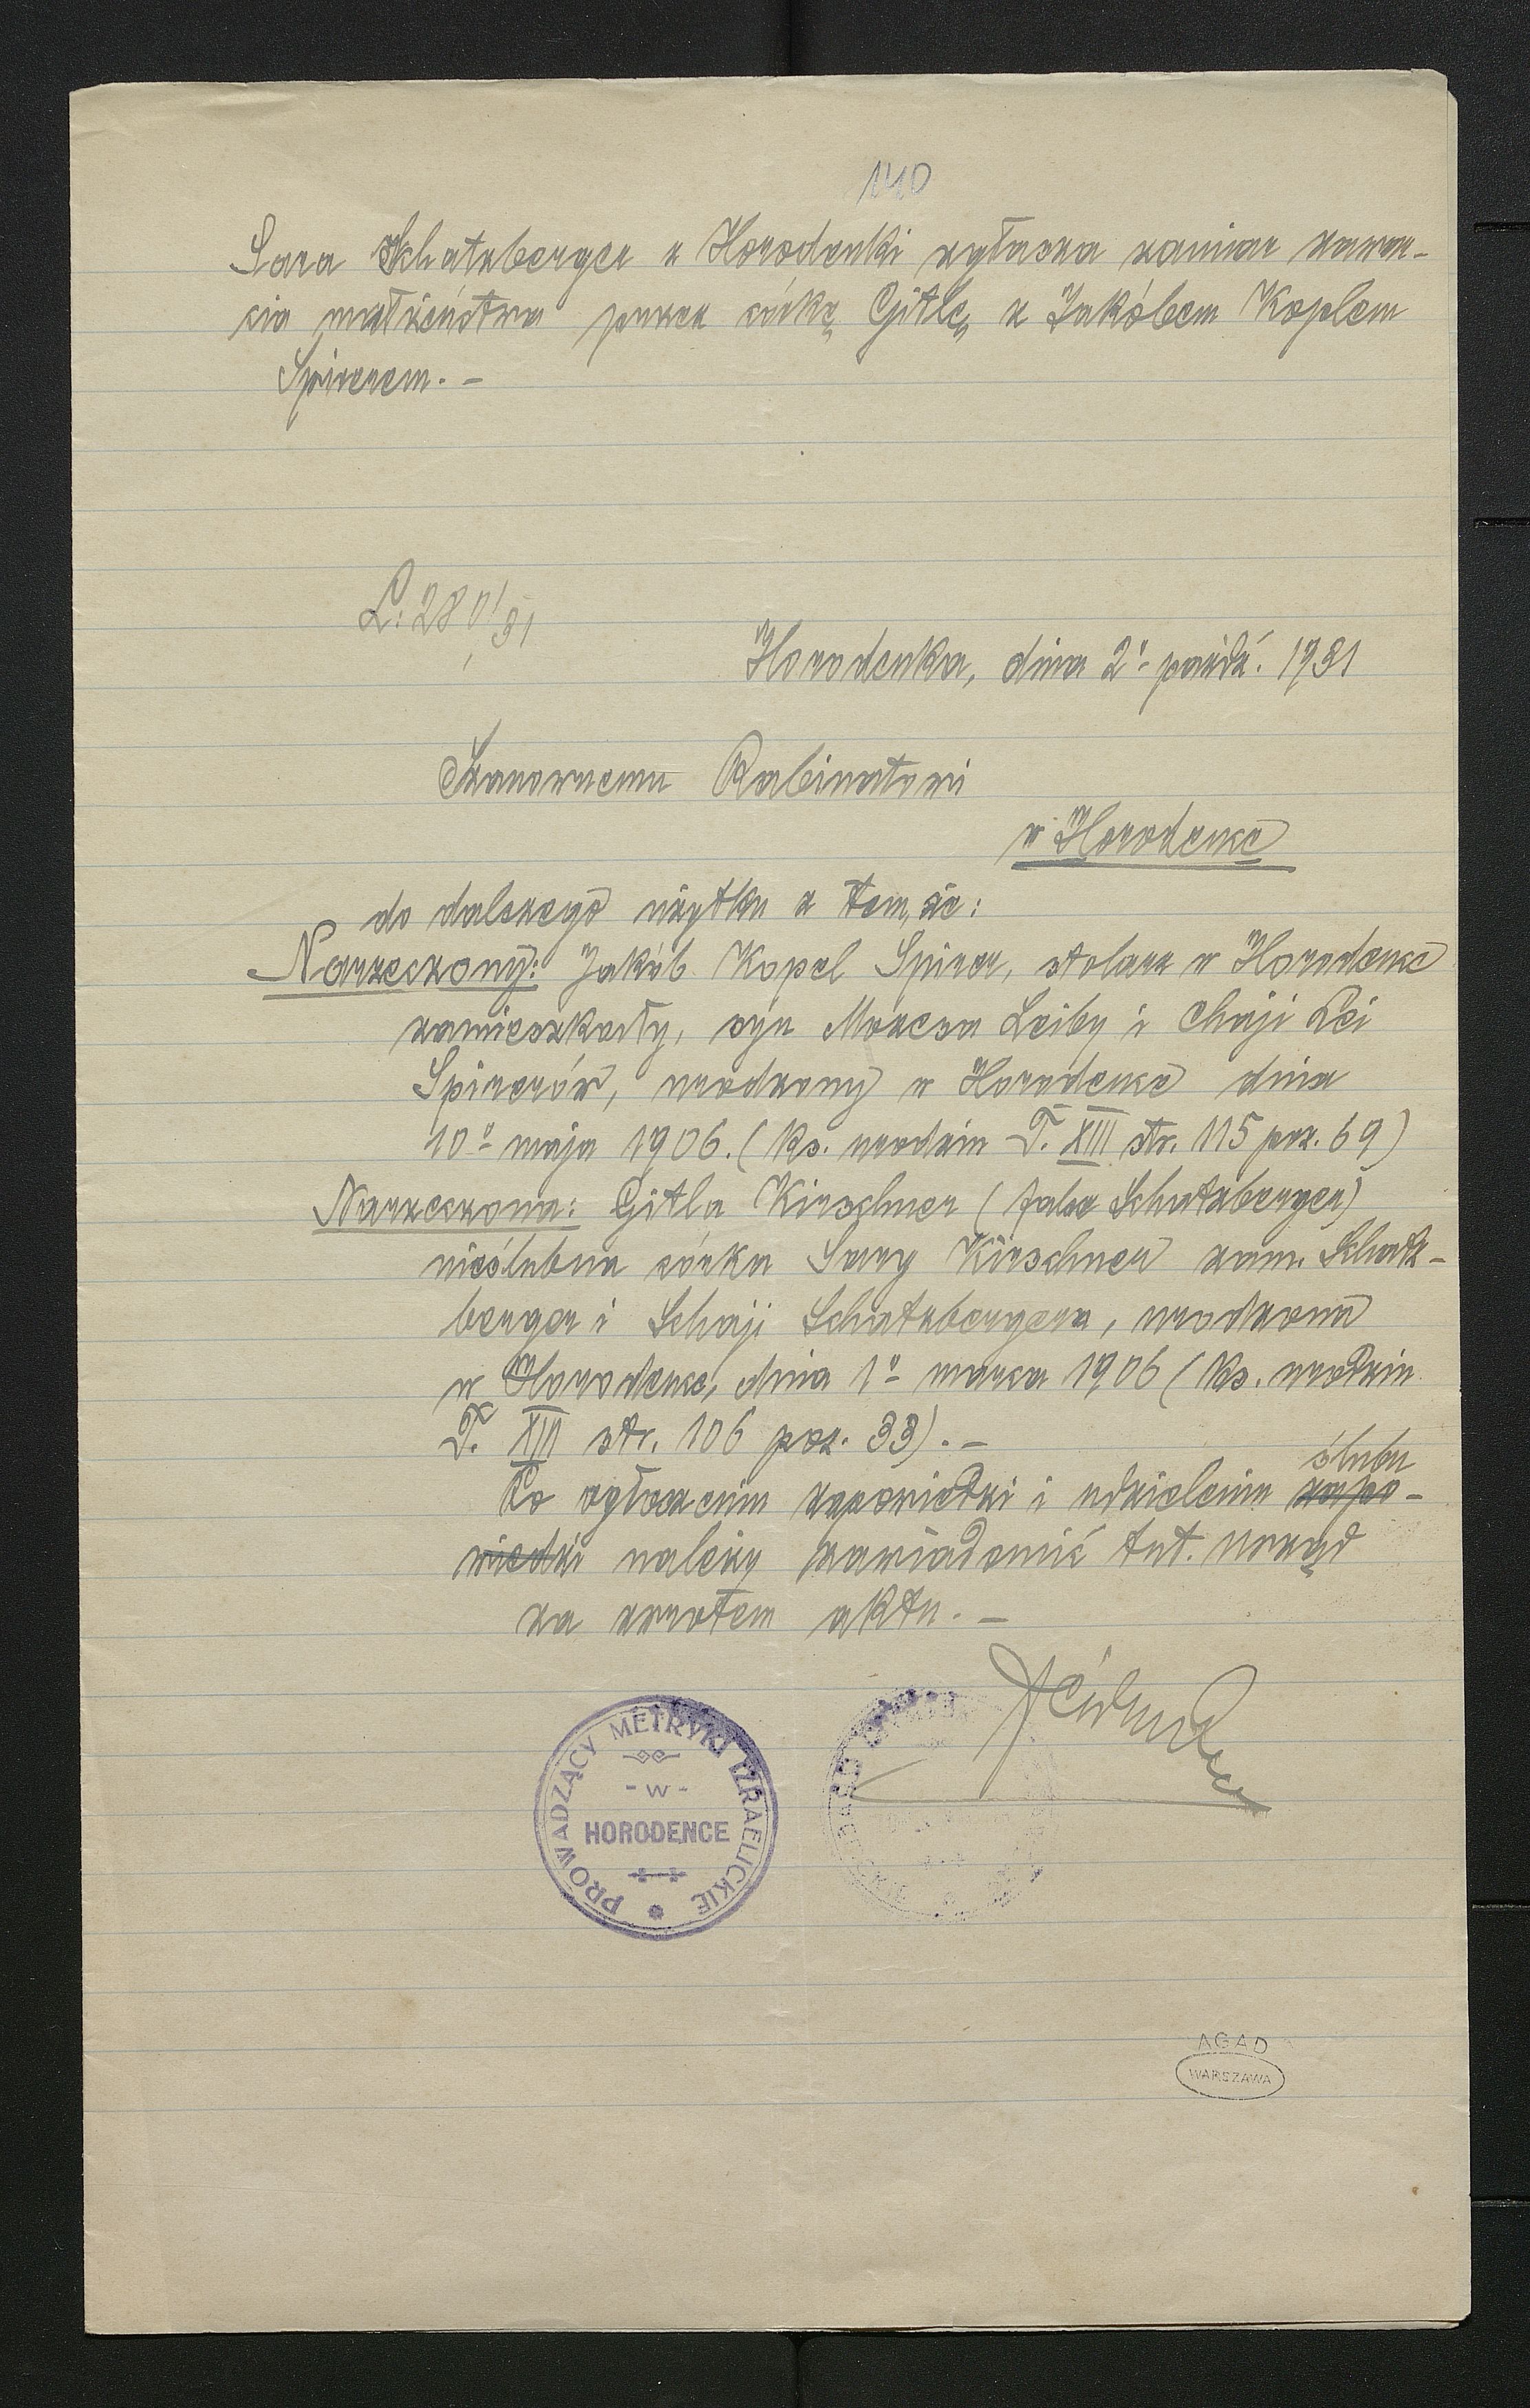 140
Sara Schatzberger z Horodenki zgłasza zamiar zawar-
cia małżeństwa przez córkę Gitlę z Jakóbem Koplem
Spirerem. -
L: 280/31
Horodenka, dnia 2º paźdź. 1931
Szanownemu Rabinatowi
w Horodence
do dalszego użytku z tem, że:
Narzeczony: Jakób Kopel Spirer, stolarz w Horodence
zamieszkały, syn Mozesa Leiby i Chaji Lei
Spirerów, urodzony w Horodence dnia
10º maja 1906. (Ks. urodzin T. XIII str. 115 poz. 69)
Narzeczona: Gitla Kirschner (false Schatzberger)
nieślubna córka Sary Kirschner zam. Schatz-
berger i Schaji Schatzbergera, urodzona
w Horodence, dnia 1º marca 1906 (Ks. urodzin
T. XIII str. 106 poz. 33). -
ślubu
Po ogłoszeniu zapowiedzi i udzieleniu zapo-
wiedzi należy zawiadomić tut. urząd
za zwrotem aktu. -
PROWADZĄCY METRYKI IZRAELICKIE
- W -
HORODENCE
AGAD
WARSZAWA